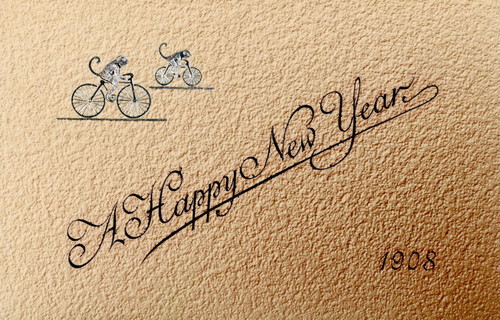 A Happy New Year
1908